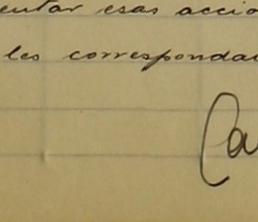 entar esas accio
les correspondan
Ca